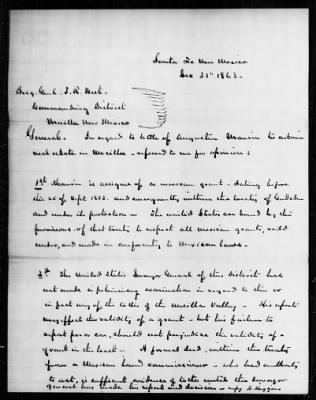 Santa Fe New Mexico
Dec 31st 1863.
Brig. Genl. J. R. West
Commanding District
Mesilla New Mexico
General. In regard to title of Augustin Maurin to certain
real estate in Mesilla - referred to me for opinion;
1st Maurin is assignee of a mexican grant - dating before
the of Sept 1853. and consequently within the treaty of Gadsden
and under its protection - The United States are bound by the
provisions of that treaty to respect all mexican grants, valid
under, and made in conformity to Mexican laws.
2d The United States Surveyor General of this district has
not made a preliminary examination in regard to this or
in fact any of the titles of the Mesilla Valley - His report
may affect the validity of a grant - but his failure to
report for or con, should not prejudice the validity of a
grant in the least - A formal deed, within the treaty
from a Mexican land commissioner - who had authority
to act, is sufficient evidence of title until the surveyor
general has made his report and decision -